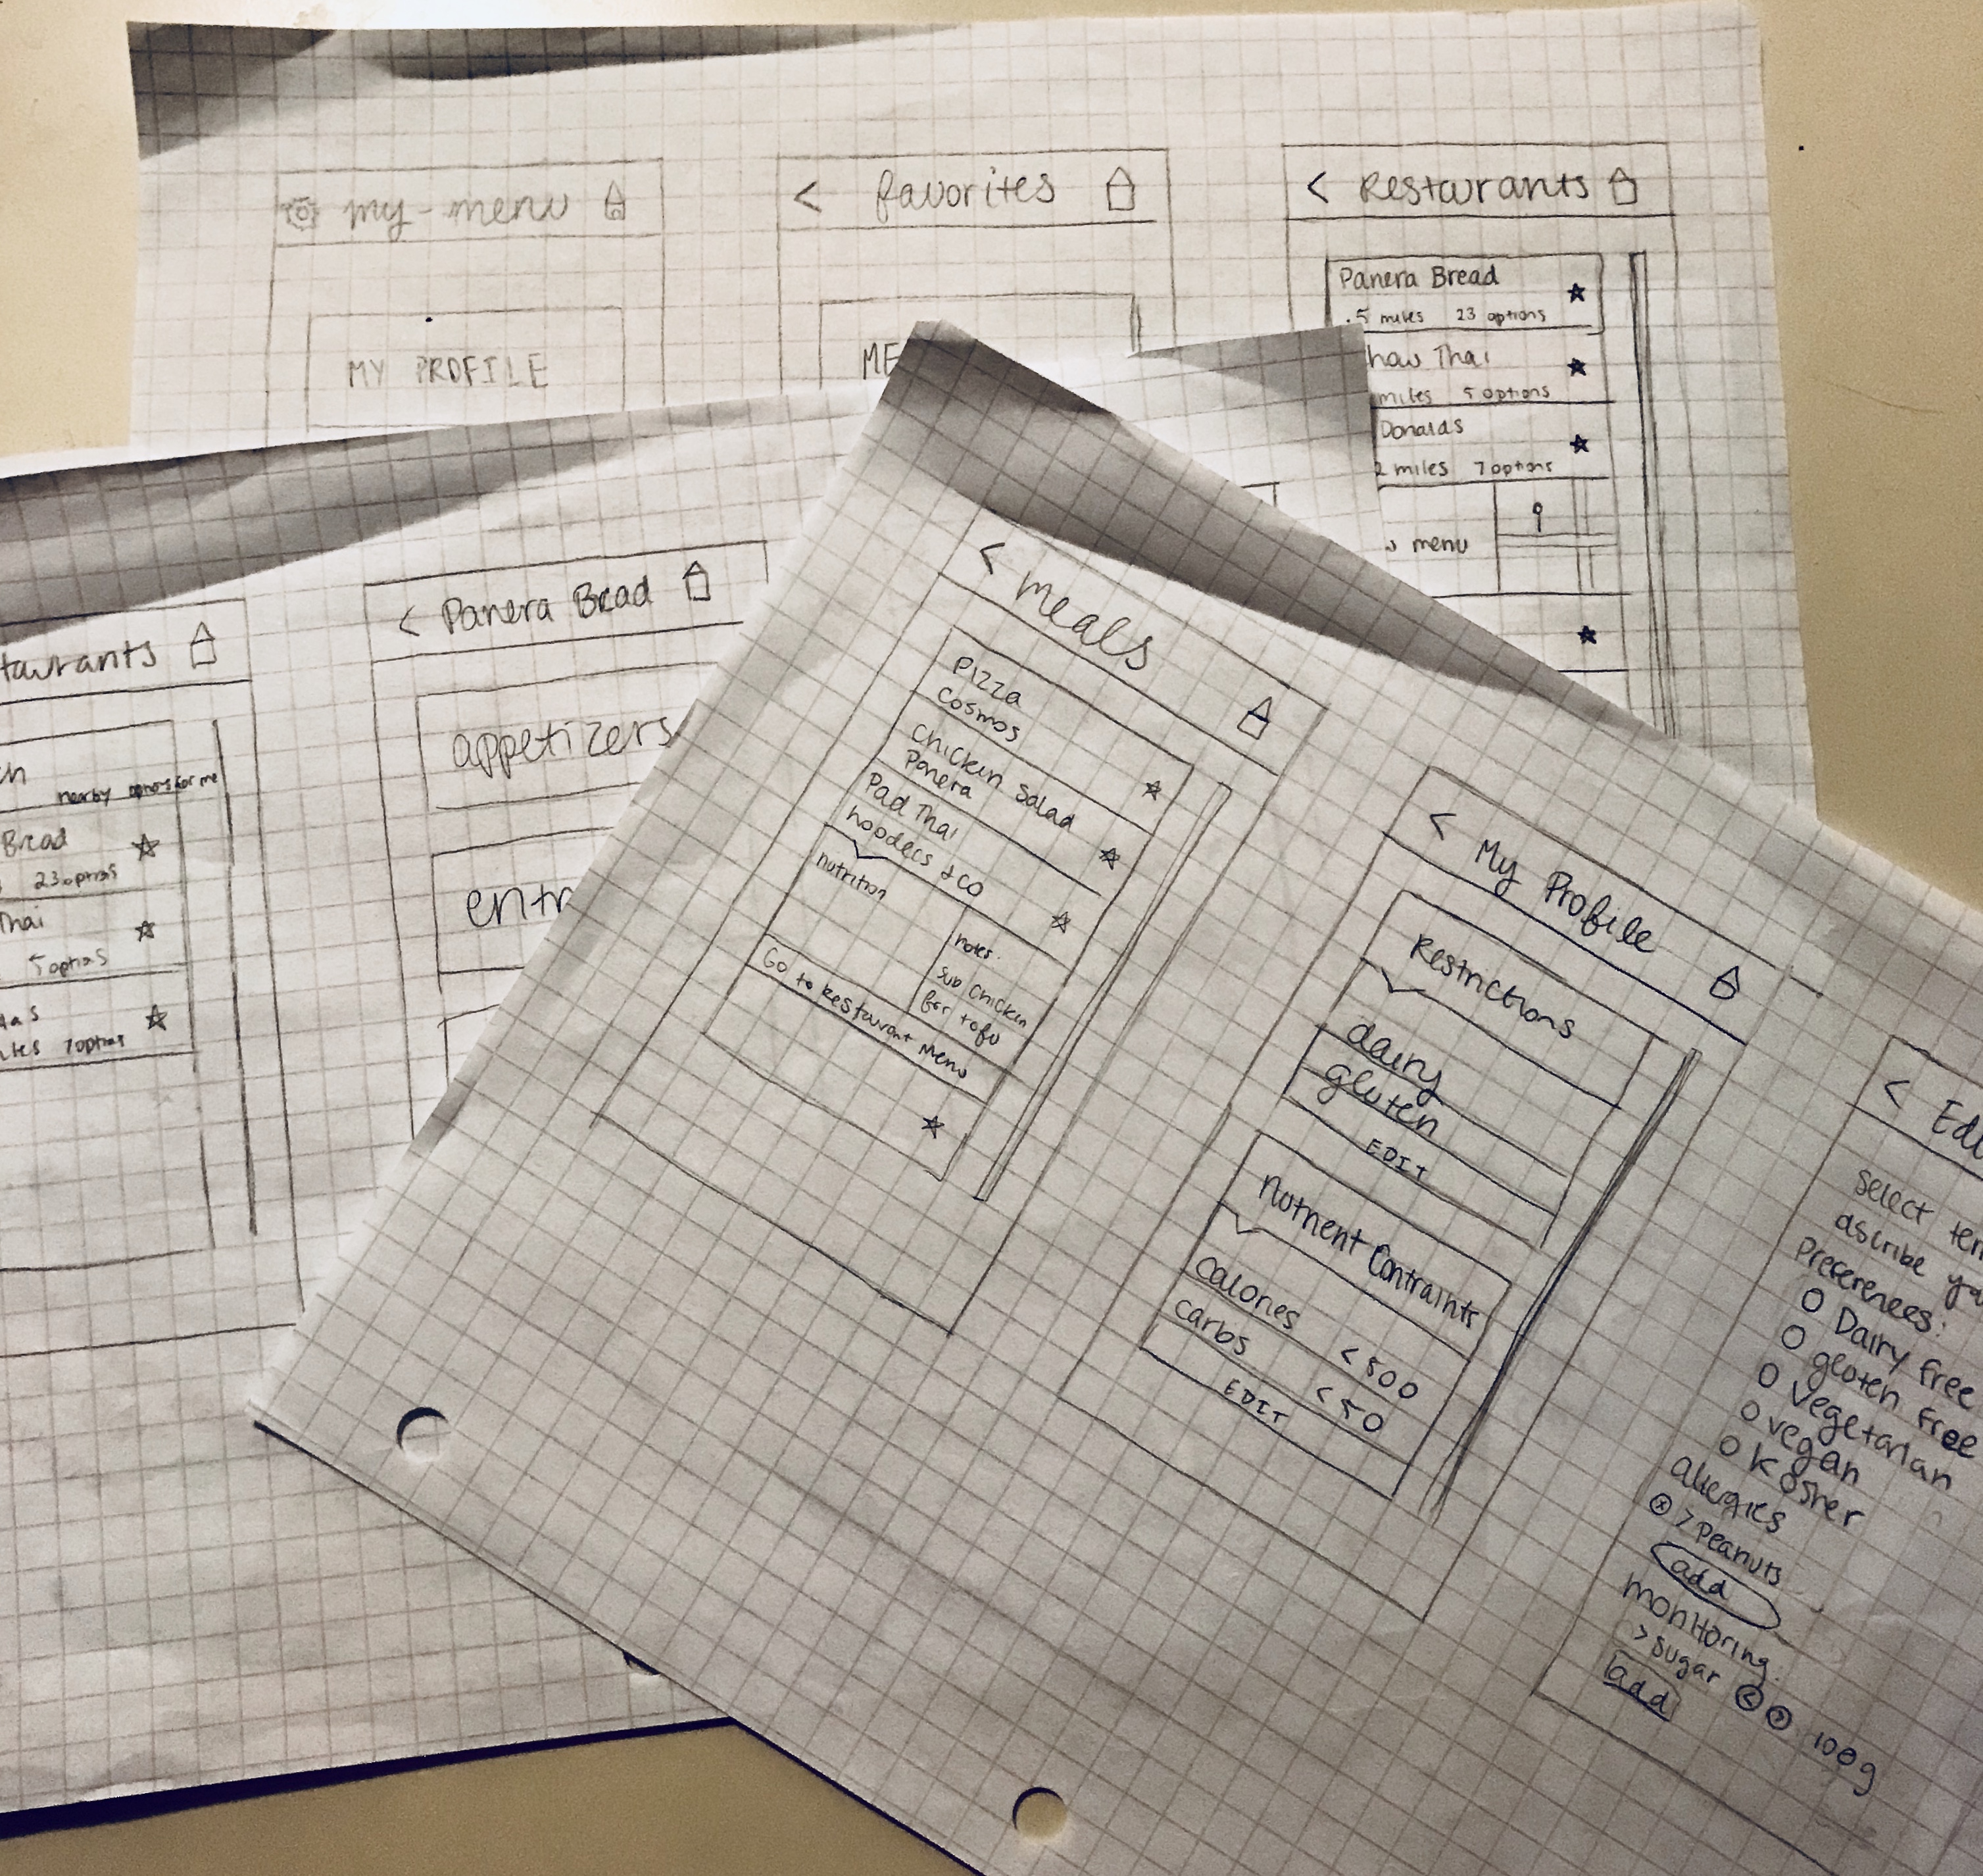 my-menu
MY PROFILE
< favorites
ME
< Restaurants
Panera Bread
.5 miles 23 options
how Thai
miles 5 options
Donalds
2 miles 7 options
menu
taurants
nearby options for me
Bread
23 options
Thai
5 options
7 options
< Panera Bread
appetizers
entr
< meals
Pizza
Cosmos
Chicken Salad
Panera
Pad Thai
noodles & co
nutrition
notes:
Sub chicken
for tofu
Go to Restaurant Menu
< My Profile
Restrictions
dairy
gluten
EDIT
Nutrient Contraints
calories <500
carbs <50
EDIT
< Edi
Select ter
describe yo
Preferences:
Dairy free
gluten free
vegetarian
vegan
kosher
allergies
> peanuts
add
monitoring:
> sugar < > 100g
add